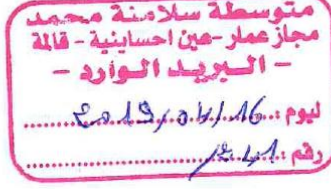 متوسطة سلامنة محمد
مجاز عمار -عين احساينية - قالمة
- البريد الوارد -
ليوم : 2019/04/16
رقم :